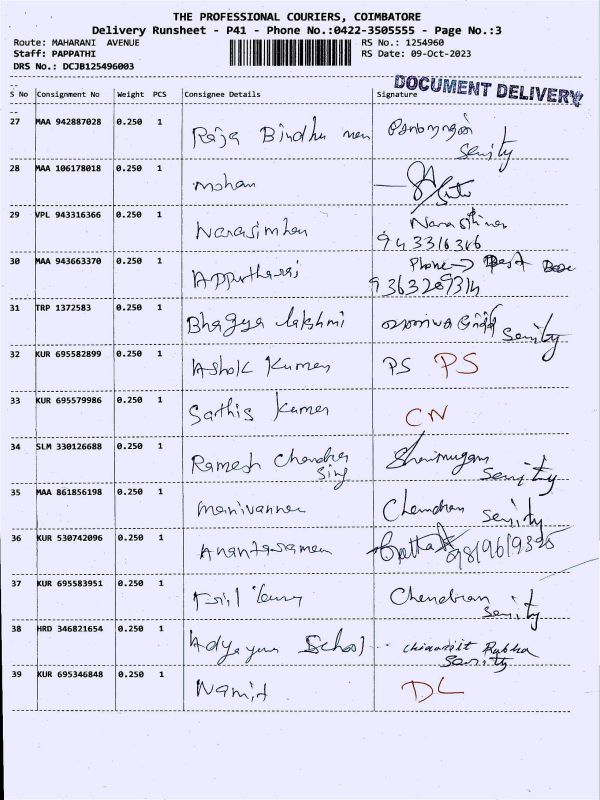 THE PROFESSIONAL COURIERS, COIMBATORE
Delivery Runsheet - P41 - Phone No.:0422-3505555 - Page No.:3
Route: MAHARANI AVENUE RS No.: 1254960
Staff: PAPPATHI RS Date: 09-Oct-2023
DRS No.: DCJB125496003
DOCUMENT DELIVERY
S No Consignment No Weight PCS Consignee Details Signature
27 MAA 942887028 0.250 1 Raja Bindhu
28 MAA 106178018 0.250 1 Mohan
29 VPL 943316366 0.250 1 Narasimhan
943316366
30 MAA 943663370 0.250 1 Phone →
31 TRP 1372583 0.250 1 Bhagya lakshmi
32 KUR 695582899 0.250 1 Ashok Kumar PS PS
33 KUR 695579986 0.250 1 Sathis Kumar CN
34 SLM 330126688 0.250 1 Ramesh Chandra Shanmugam
Sing
35 MAA 861856198 0.250 1 Manivannan Chandran
36 KUR 530742096 0.250 1 Anantaraman
37 KUR 695583951 0.250 1 Chandran
38 HRD 346821654 0.250 1 School
39 KUR 695346848 0.250 1 Namit DL